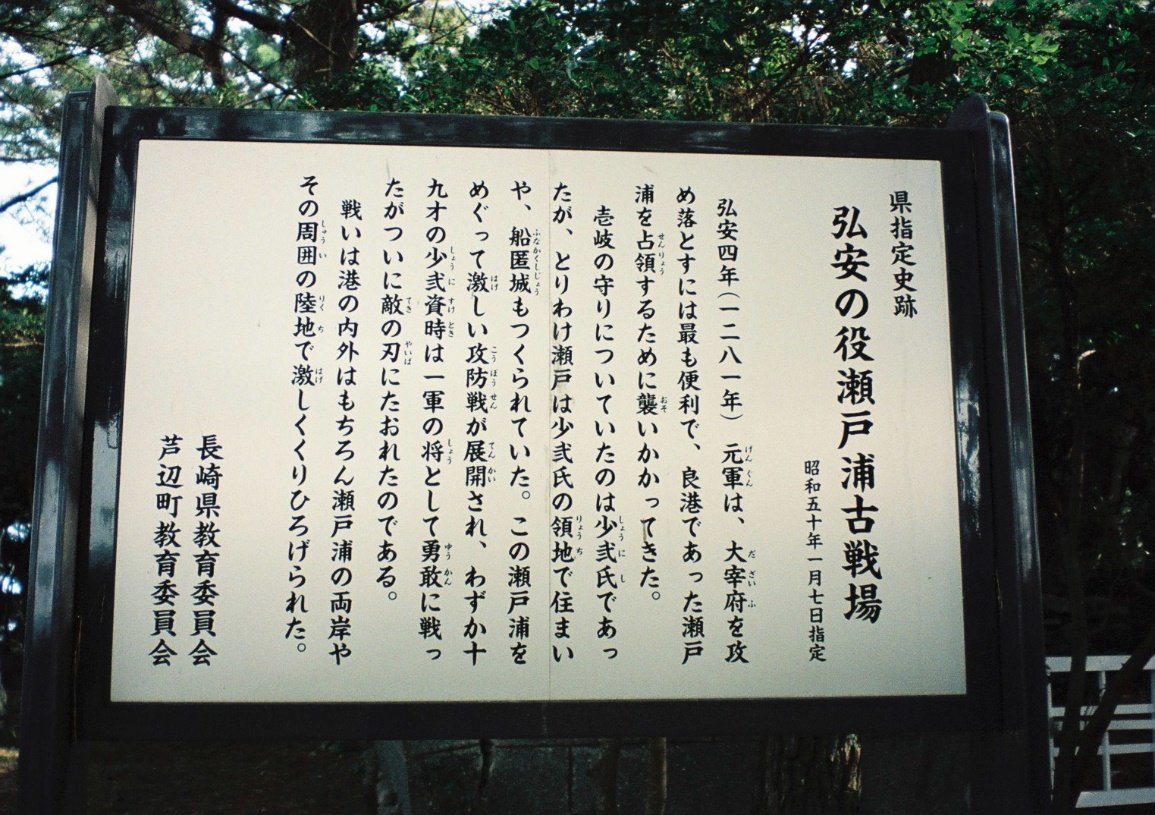 県指定史跡
弘安の役瀬戸浦古戦場
昭和五十年一月七日指定
弘安四年(一二八一年)元軍は、大宰府を攻
め落とすには最も便利で、良港であった瀬戸
浦を占領するために襲いかかってきた。
壱岐の守りについていたのは少弐氏であっ
たが、とりわけ瀬戸は少弐氏の領地で住まい
や、船匿城もつくられていた。この瀬戸浦を
めぐって激しい攻防戦が展開され、わずか十
九才の少弐資時は一軍の将として勇敢に戦っ
たがついに敵の刃にたおれたのである。
戦いは港の内外はもちろん瀬戸浦の両岸や
その周囲の陸地で激しくくりひろげられた。
長崎県教育委員会
芦辺町教育委員会